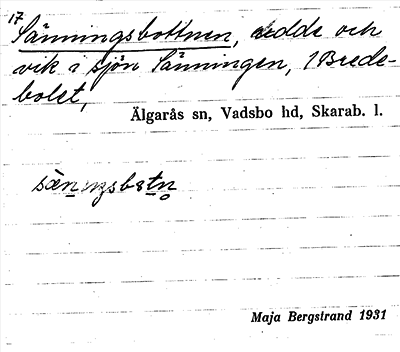 17
Sänningsbottnen, udde och
vik i sjön Sänningen, 1 Brede-
bolet,
Älgarås sn, Vadsbo hd, Skarab. l.
Maja Bergstrand 1931